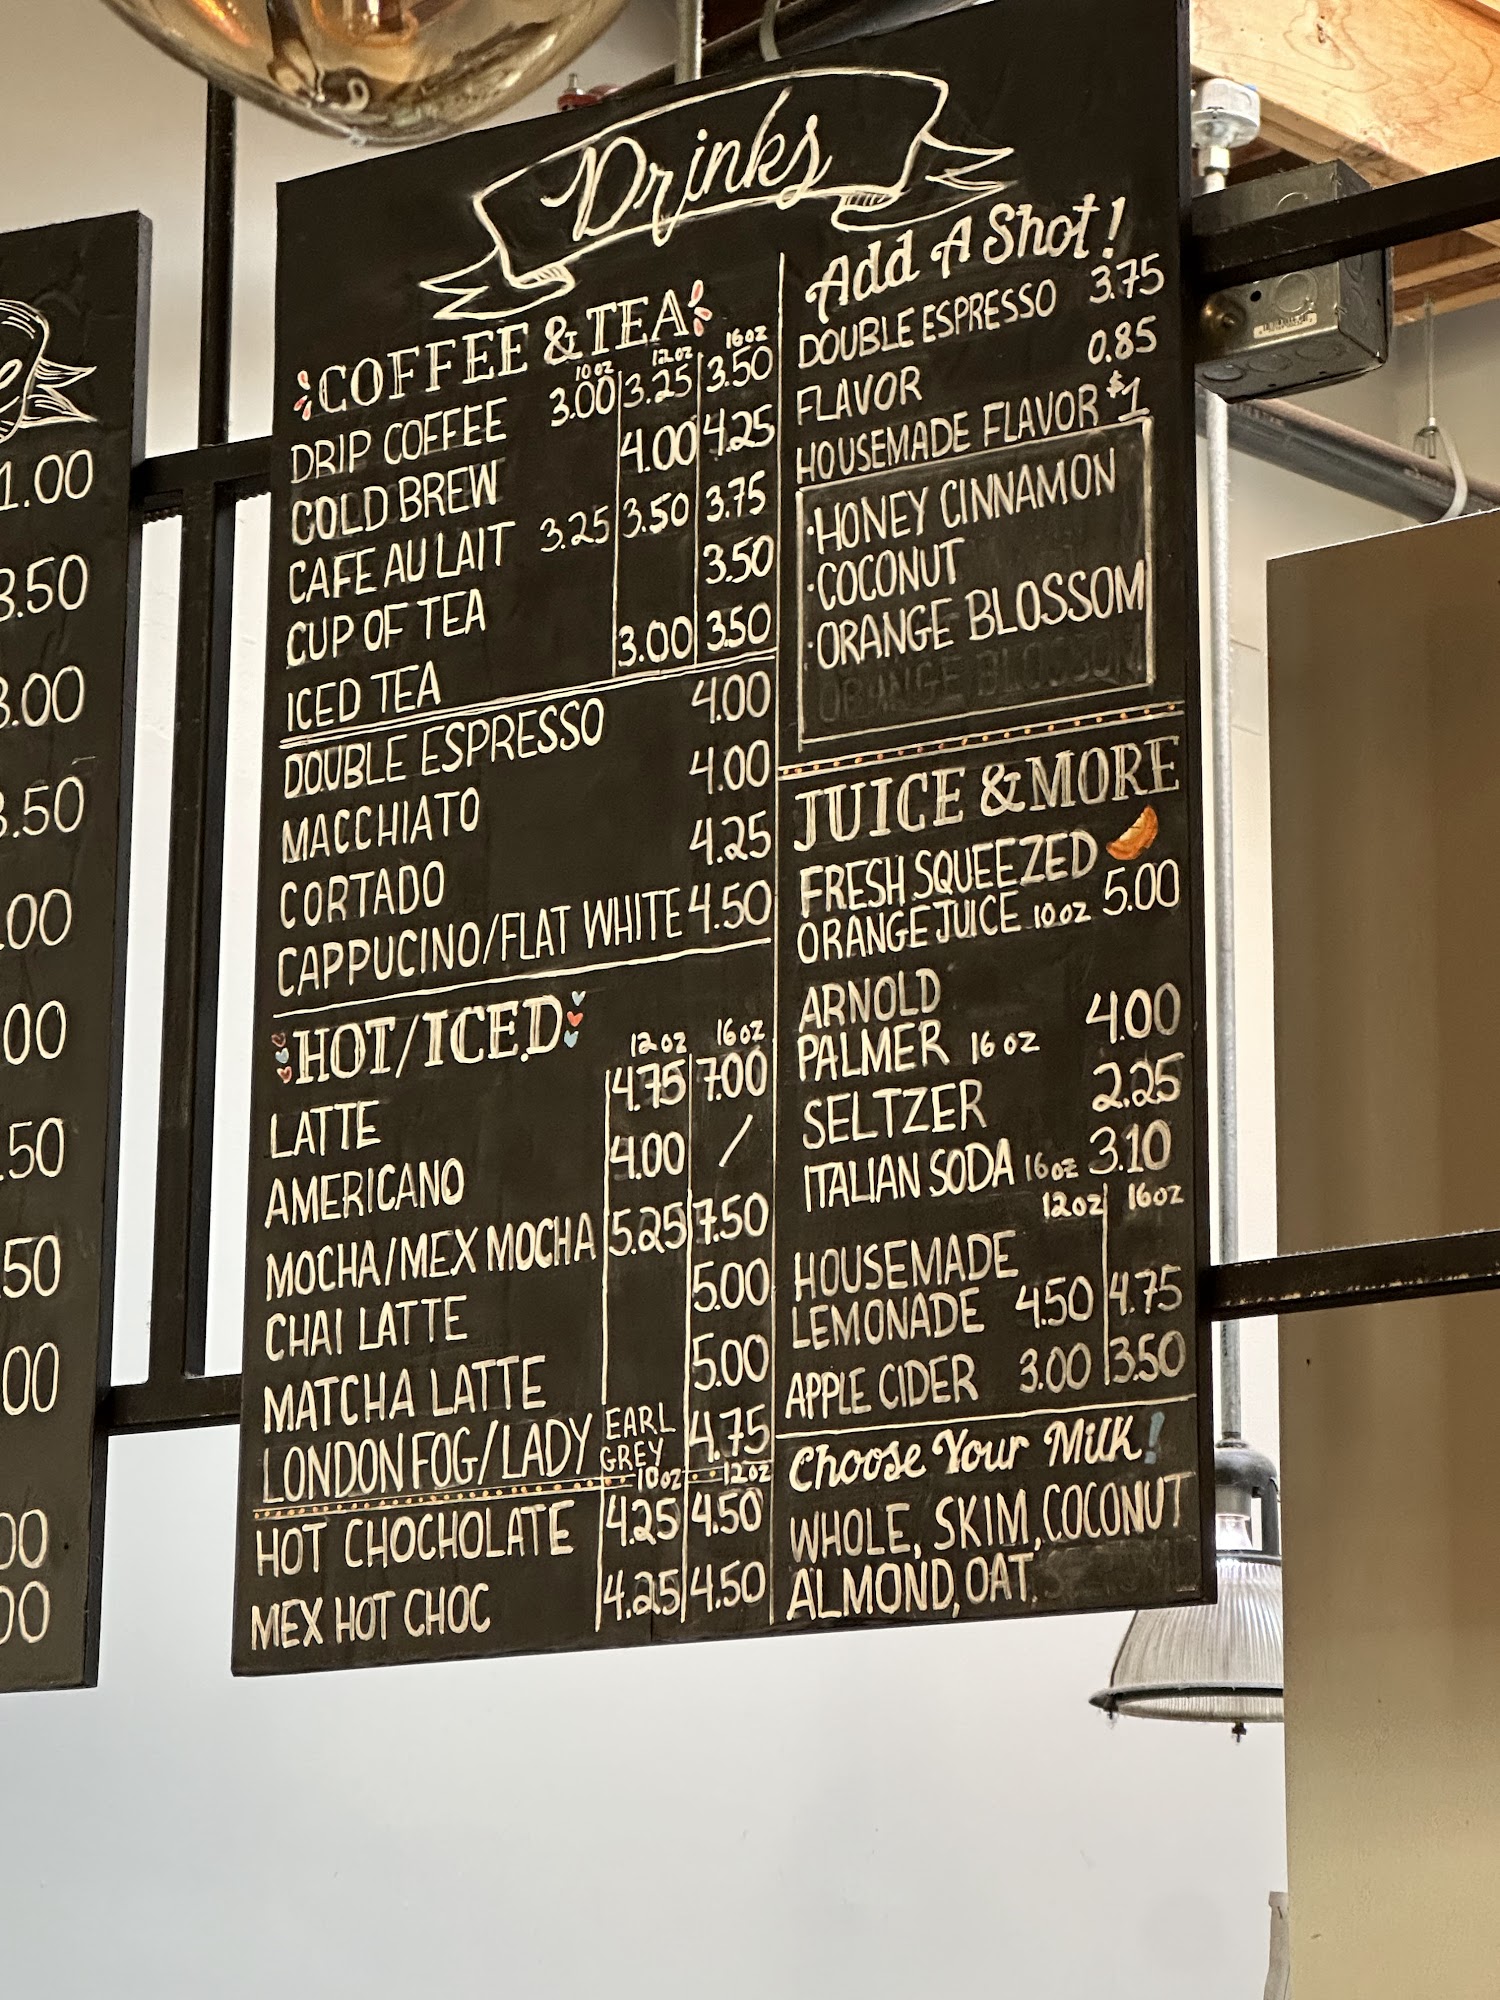 Drinks
COFFEE & TEA
10 oz 12 oz 16 oz
DRIP COFFEE 3.00 3.25 3.50
COLD BREW 4.00 4.25
CAFE AU LAIT 3.25 3.50 3.75
CUP OF TEA 3.50
ICED TEA 3.00 3.50
DOUBLE ESPRESSO 4.00
MACCHIATO 4.00
CORTADO 4.25
CAPPUCINO/FLAT WHITE 4.50
HOT/ICED
12 oz 16 oz
LATTE 4.75 7.00
AMERICANO 4.00 /
MOCHA/MEX MOCHA 5.25 7.50
CHAI LATTE 5.00
MATCHA LATTE 5.00
LONDON FOG/LADY EARL GREY 4.75
10 oz 12 oz
HOT CHOCHOLATE 4.25 4.50
MEX HOT CHOC 4.25 4.50
Add A Shot!
DOUBLE ESPRESSO 3.75
FLAVOR 0.85
HOUSEMADE FLAVOR $1
·HONEY CINNAMON
·COCONUT
·ORANGE BLOSSOM
ORANGE BLOSSOM
JUICE & MORE
FRESH SQUEEZED
ORANGE JUICE 10 oz 5.00
ARNOLD
PALMER 16 oz 4.00
SELTZER 2.25
ITALIAN SODA 16 oz 3.10
12 oz 16 oz
HOUSEMADE
LEMONADE 4.50 4.75
APPLE CIDER 3.00 3.50
Choose Your Milk!
WHOLE, SKIM, COCONUT
ALMOND, OAT
1.00
3.50
3.00
3.50
.00
.00
.50
.50
.00
.00
.00